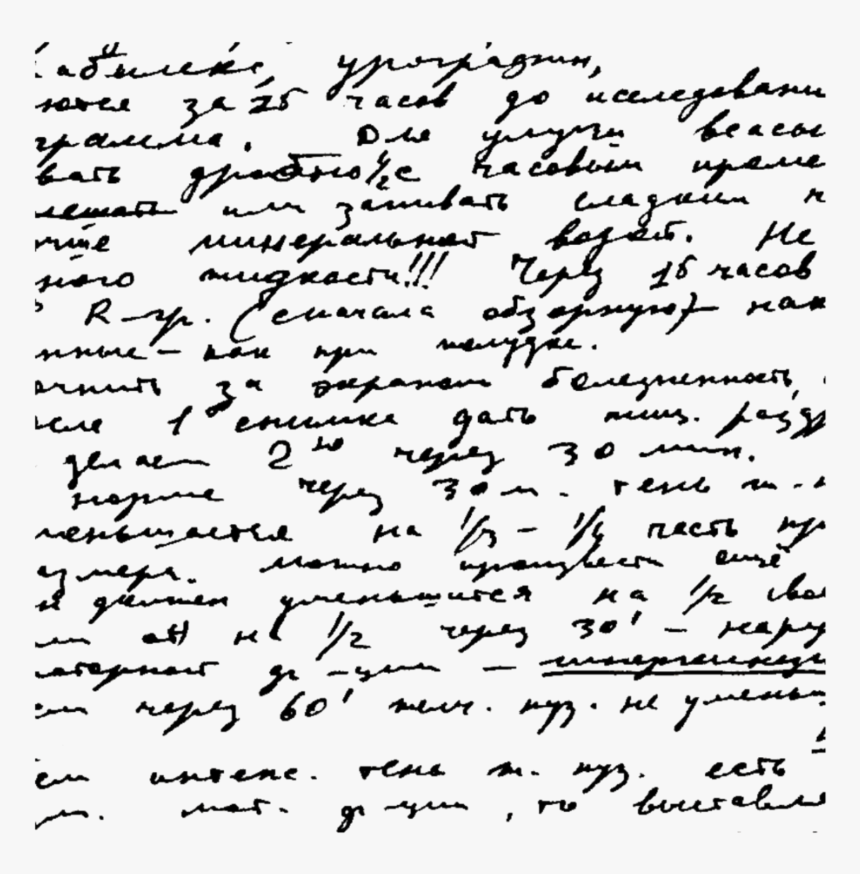 урографин,
ются за 15 часов до исследовани
грамма. Для улучш всасы
вать дробно ½с часовым проме
мешать или запивать сладким ч
минеральной водой. Не
ного жидкости!!! Через 15 часов
R-гр. (сначала обзорную)- нак
нные - как при желудке.
очнить за экраном болезненность,
осле 1го снимка дать пищ. раздр
делаем 2ю через 30 мин.
норме через 30 м. тень ж.
меньшается на 1/3 - 1/4 часть пр
азмера. Можно произвести ещё
должен уменьшится на 1/2 сво
на 1/2 через 30' - нару
моторной ф-ции - гиперкинез
через 60' желч. пуз. не уменьш
ем интенс. тень ж. пуз. есть
мот. ф-ции, то выставля